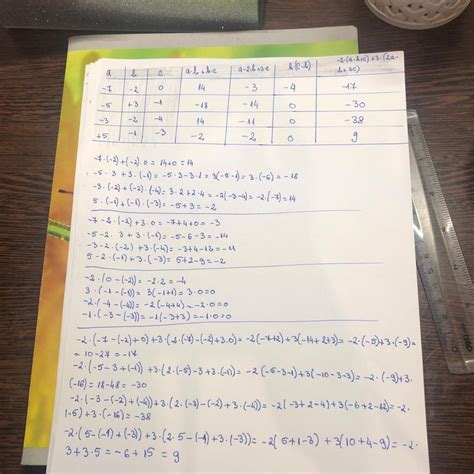 a b c a·b+bc a-2b+3c b(c-b) -2·(a-b+c)+3·(2a-b+3c)
-7 -2 0 14 -3 -4 -17
-5 +3 -1 -18 -14 0 -30
-3 -2 -4 14 -11 0 -38
+5 -1 -3 -2 -2 0 9
-7·(-2)+(-2)·0=14+0=14
-5·3+3·(-1)=-5·3-3·1=3(-5-1)=3·(-6)=-18
-3·(-2)+(-2)·(-4)=3·2+2·4=-2(-3-4)=-2·(-7)=14
5·(-1)+(-1)·(-3)=-5+3=-2
-7-2·(-2)+3·0=-7+4+0=-3
-5-2·3+3·(-1)=-5-6-3=-14
-3-2·(-2)+3·(-4)=-3+4-12=-11
5-2·(-1)+3·(-3)=5+2-9=-2
-2·(0-(-2))=-2·2=-4
3·(-1-(-1))=3(-1+1)=3·0=0
-2·(-4-(-4))=-2(-4+4)=-2·0=0
-1·(-3-(-3))=-1(-3+3)=-1·0=0
-2·(-7-(-2)+0)+3·(2·(-7)-(-2)+3·0)=-2(-7+2)+3(-14+2+3)=-2·(-5)+3·(-9)=
=10-27=-17
-2·(-5-3+(-1))+3·(2·(-5)-3+3·(-1))=-2(-5-3-1)+3(-10-3-3)=-2·(-9)+3·
(-16)=18-48=-30
-2·(-3-(-2)+(-4))+3·(2·(-3)-(-2)+3·(-4))=-2(-3+2-4)+3(-6+2-12)=-2·
(-5)+3·(-16)=-38
-2·(5-(-1)+(-3))+3·(2·5-(-1)+3·(-3))=-2(5+1-3)+3(10+4-9)=-2·
3+3·5=-6+15=9